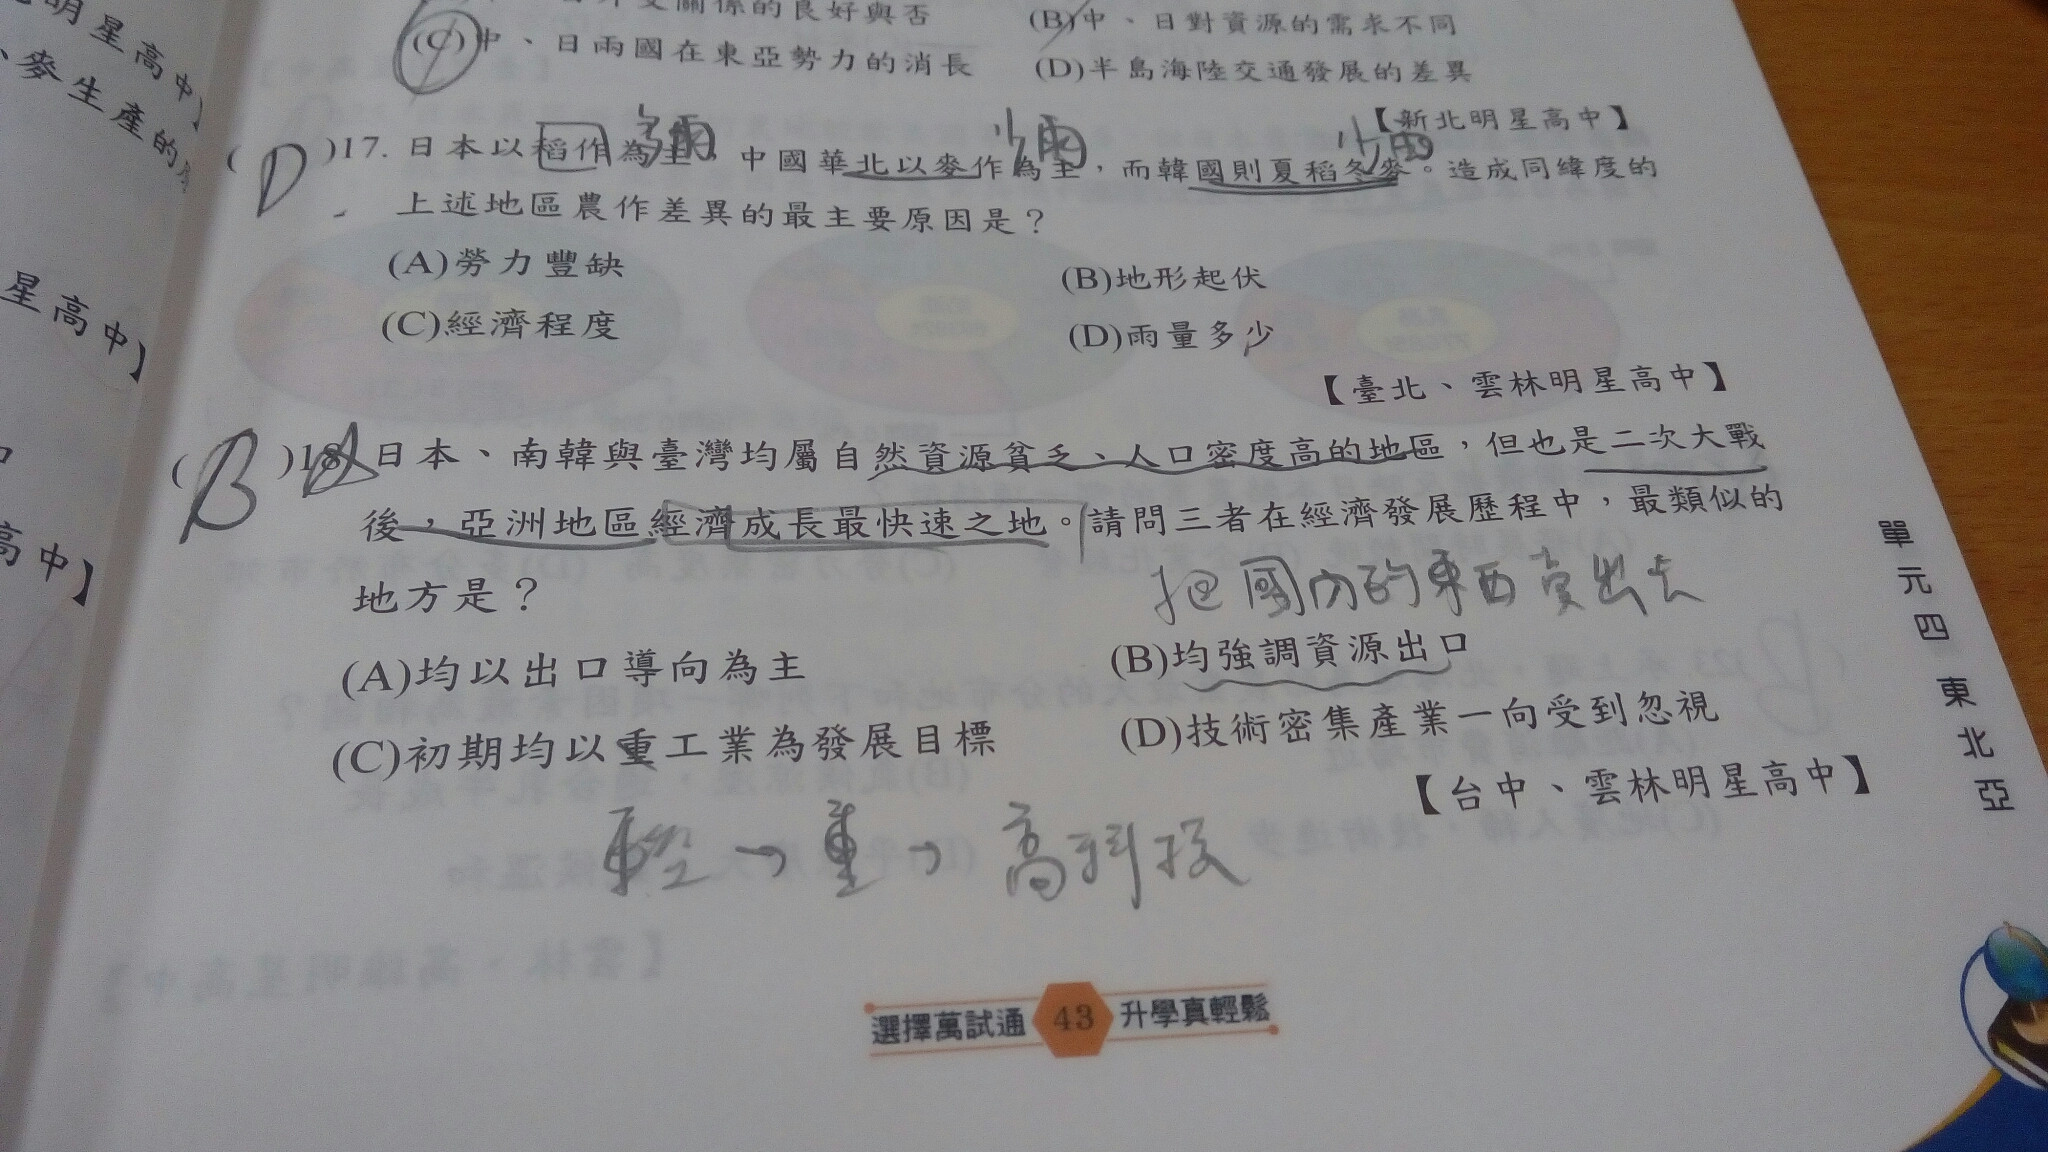 明星高中】
、麥生產的
星高中】
高中】
關係的良好與否
(B)中、日對資源的需求不同
(C)中、日兩國在東亞勢力的消長
(D)半島海陸交通發展的差異
【新北明星高中】
多雨
少雨
少雨
( D )17. 日本以稻作為主，中國華北以麥作為主，而韓國則夏稻冬麥。造成同緯度的
上述地區農作差異的最主要原因是？
(A)勞力豐缺
(B)地形起伏
(C)經濟程度
(D)雨量多少
【臺北、雲林明星高中】
( B )18. 日本、南韓與臺灣均屬自然資源貧乏、人口密度高的地區，但也是二次大戰
後，亞洲地區經濟成長最快速之地。請問三者在經濟發展歷程中，最類似的
地方是？
把國內的東西賣出去
(A)均以出口導向為主
(B)均強調資源出口
(C)初期均以重工業為發展目標
(D)技術密集產業一向受到忽視
【台中、雲林明星高中】
輕→重→高科技
單元四 東北亞
選擇萬試通 43 升學真輕鬆